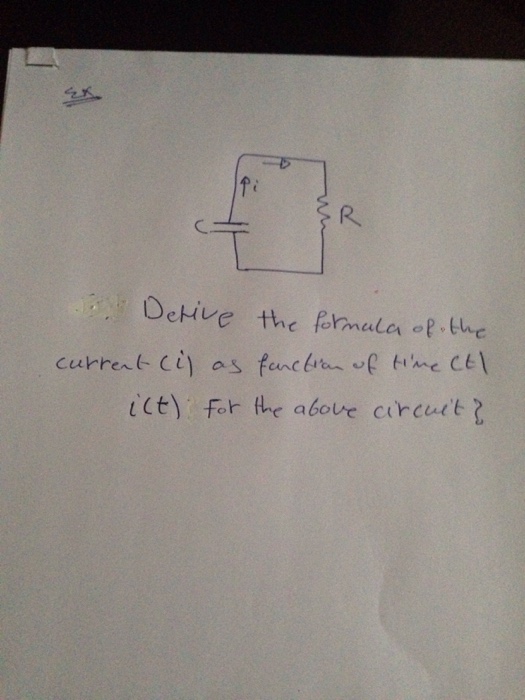 Ex
i
C
R
Derive the formula of the
current (i) as function of time (t)
i(t) for the above circuit?